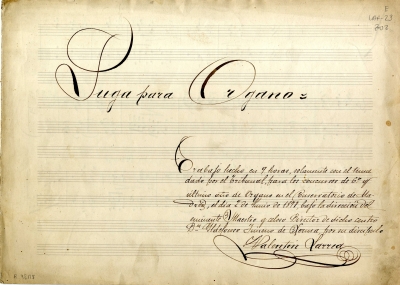 P
LAH-23
203
Fuga para Organo=
Trabajo hecho en 9 horas, solamente con el tema
dado por el tribunal para los concursos de 6º y
ultimo año de Organo en el Conservatorio de Ma
drid, el dia 2 de Junio de bajo la dirección del
eminente Maestro y celoso Director de dicho centro
Dn. Ildefonso Jimeno de Lerma, por su discipulo
Valentin Larrea